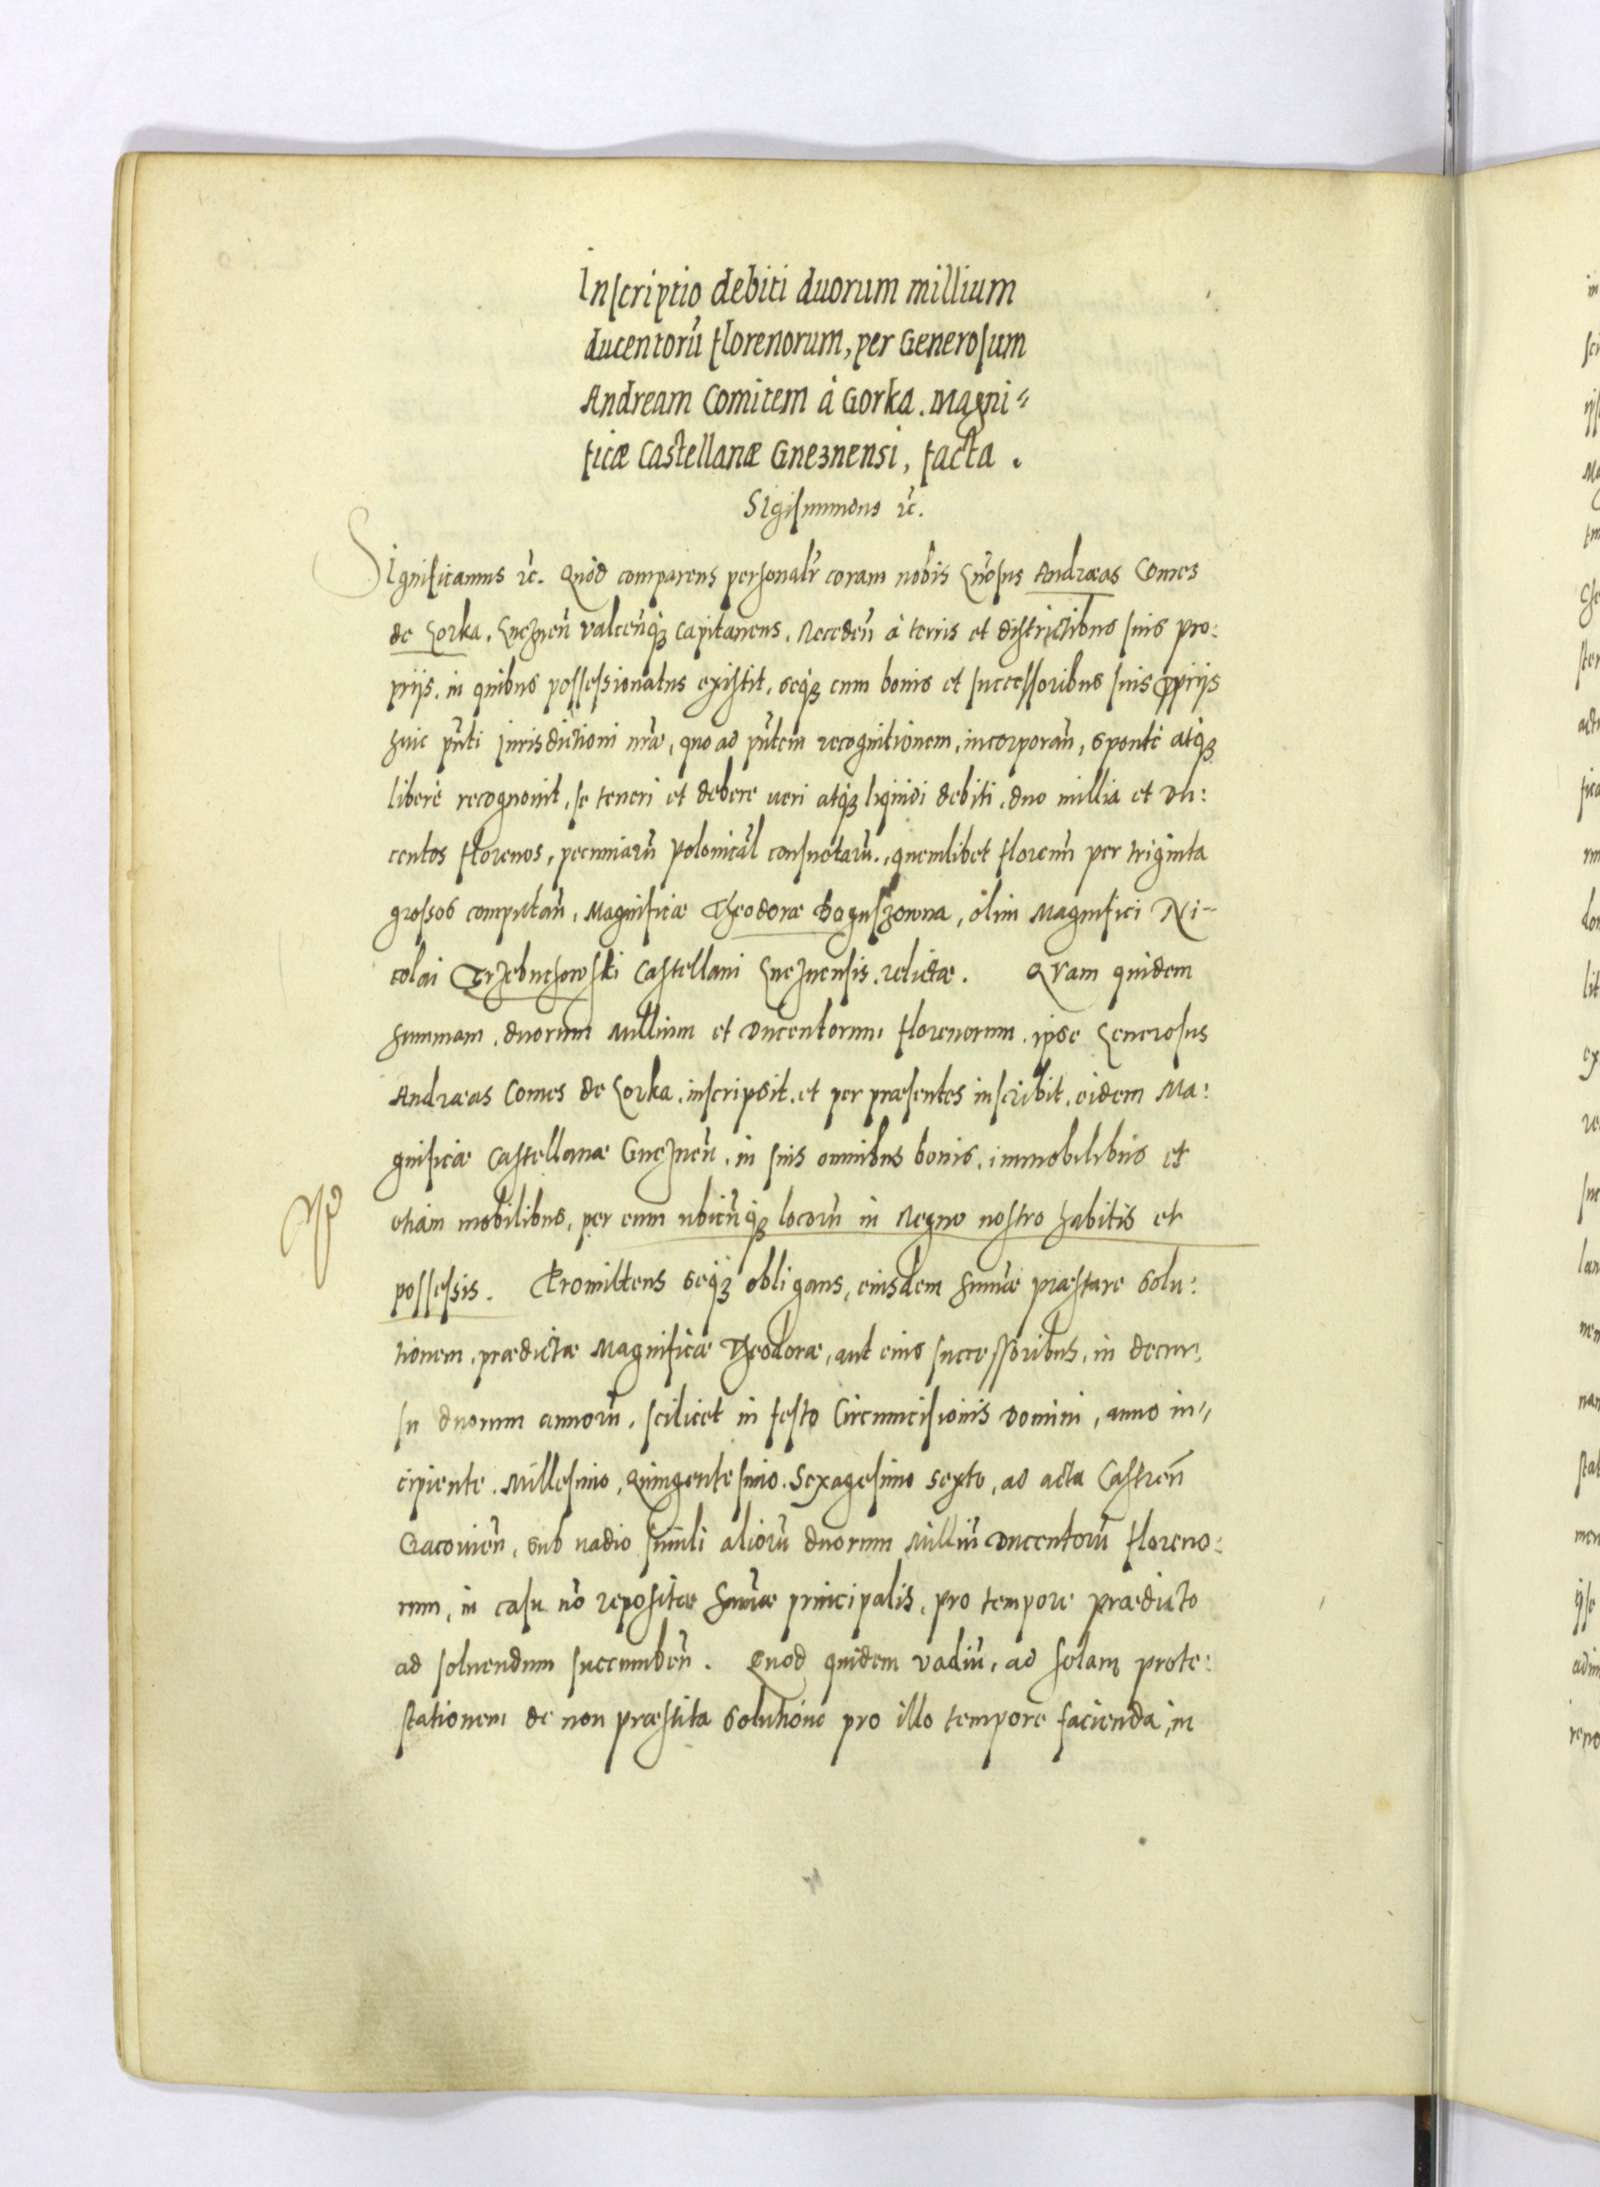 Inscriptio debiti duorum millium
ducentorũ florenorum, per Generosum
Andream Comitem à Gorka. Magni=
ficæ Castellanæ Gneznensi, facta.
Sigismundus ꝛc.
Significamus ꝛc. Quòd comparens personalr̃ coram nobis Gñosus Andræas Comes
de Gorka, Gneznen̄ valcen̄qꝫ Capitaneus, Receden̄ à terris et districtibus suis pro:
prijs, in quibus possessionatus existit, seqꝫ cum bonis et successoribus suis ꝓprijs
huic pñti Jurisdictioni nr̃æ, quo ad pñtem recognitionem, incorporan̄, sponte atqꝫ
libere recognouit, se teneri et debere ueri atqꝫ liquidi debiti, duo millia et du:
centos florenos, pecuniarũ Polonical̃ consuetarũ, quemlibet florenũ per triginta
grossos computan̄, Magnificæ Theodoræ Boguszowna, olim Magnifici Ni-
colai Trzebuchowski Castellani Gneznensis, relictæ. Quam quidem
summam, duorum Millium et Ducentorum florenorum, ipse Generosus
Andræas Comes de Gorka, inscripsit, et per præsentes inscribit, eidem Ma:
gnificæ Castellanæ Gneznen̄, in suis omnibus bonis, immobilibus et
etiam mobilibus, per eum ubicũqꝫ locorũ in Regno nostro habitis et
possessis. Promittens seqꝫ obligans, eiusdem summæ præstare solu:
tionem, prædictæ Magnificæ Theodoræ, aut eius successoribus, in decur,
su duorum annorũ, scilicet in festo Circumcisionis Domini, anno in=
cipiente. Millesimo, Quingentesimo. Sexagesimo sexto, ad acta Castren̄
Cracouien̄, sub uadio simili aliorũ duorum Milliũ Ducentorũ floreno:
rum, in casu nõ repositæ sum̃æ principalis, pro tempore prædicto
ad soluendum succumben̄. Quod quidem vadiũ, ad solam prote:
stationem de non præstita solutione pro illo tempore facienda, in